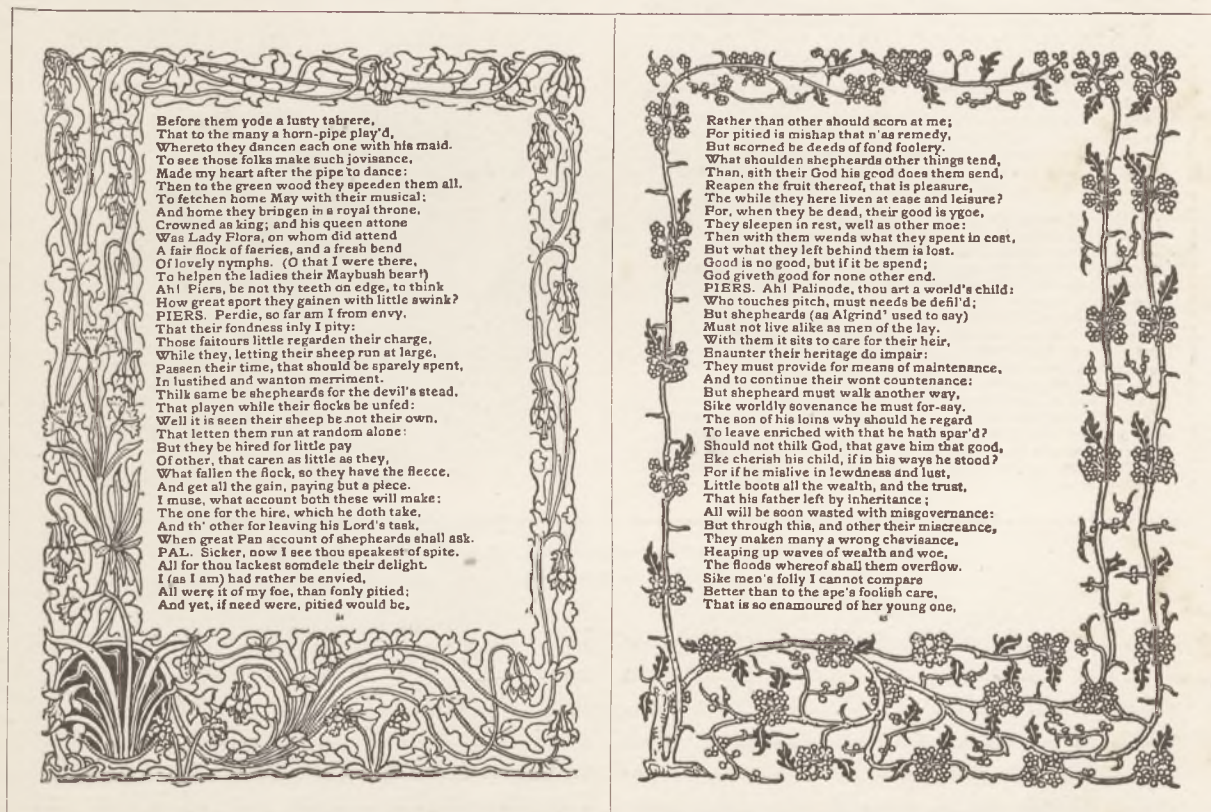 Before them yode a lusty tabrere,
That to the many a horn-pipe play'd,
Whereto they dancen each one with his maid.
To see those folks make such jovisance,
Made my heart after the pipe to dance:
Then to the green wood they speeden them all.
To fetchen home May with their musical;
And home they bringen in a royal throne,
Crowned as king; and his queen attone
Was Lady Flora, on whom did attend
A fair flock of faeries, and a fresh bend
Of lovely nymphs. (O that I were there,
To helpen the ladies their Maybush bear!)
Ah! Piers, be not thy teeth on edge, to think
How great sport they gainen with little swink?
PIERS. Perdie, so far am I from envy,
That their fondness inly I pity:
Those faitours little regarden their charge,
While they, letting their sheep run at large,
Passen their time, that should be sparely spent,
In lustihed and wanton merriment.
Thilk same be shepheards for the devil's stead,
That playen while their flocks be unfed:
Well it is seen their sheep be not their own,
That letten them run at random alone:
But they be hired for little pay
Of other, that caren as little as they,
What fallen the flock, so they have the fleece,
And get all the gain, paying but a piece.
I muse, what account both these will make;
The one for the hire, which he doth take,
And th' other for leaving his Lord's task,
When great Pan account of shepheards shall ask.
PAL. Sicker, now I see thou speakest of spite,
All for thou lackest somdele their delight.
I (as I am) had rather be envied,
All were it of my foe, than fonly pitied;
And yet, if need were, pitied would be,
Rather than other should scorn at me;
For pitied is mishap that n'as remedy,
But scorned be deeds of fond foolery.
What shoulden shepheards other things tend,
Than, sith their God his good does them send,
Reapen the fruit thereof, that is pleasure,
The while they here liven at ease and leisure?
For, when they be dead, their good is ygoe,
They sleepen in rest, well as other moe:
Then with them wends what they spent in cost,
But what they left behind them is lost.
Good is no good, but if it be spend;
God giveth good for none other end.
PIERS. Ah! Palinode, thou art a world's child:
Who touches pitch, must needs be defil'd;
But shepheards (as Algrind' used to say)
Must not live alike as men of the lay.
With them it sits to care for their heir,
Enaunter their heritage do impair:
They must provide for means of maintenance,
And to continue their wont countenance:
But shepheard must walk another way,
Sike worldly sovenance he must for-say.
The son of his loins why should he regard
To leave enriched with that he hath spar'd?
Should not thilk God, that gave him that good,
Eke cherish his child, if in his ways he stood?
For if he mislive in lewdness and lust,
Little boots all the wealth, and the trust,
That his father left by inheritance;
All will be soon wasted with misgovernance:
But through this, and other their miscreance,
They maken many a wrong chevisance,
Heaping up waves of wealth and woe,
The floods whereof shall them overflow.
Sike men's folly I cannot compare
Better than to the ape's foolish care,
That is so enamoured of her young one,